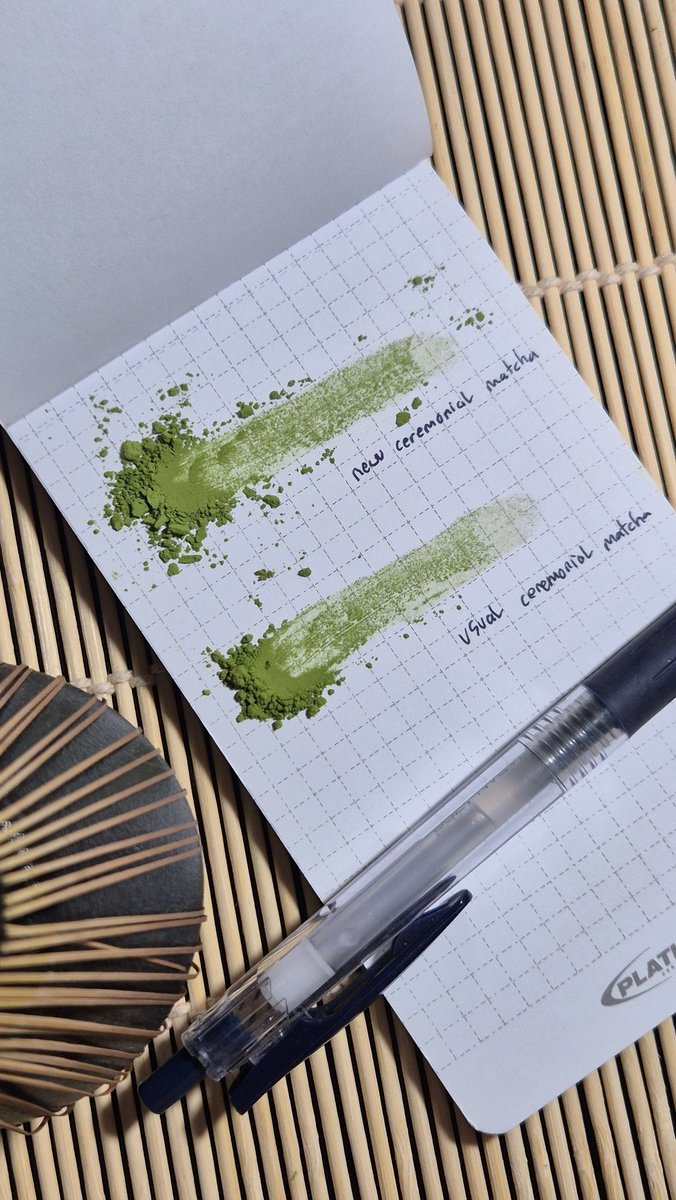 new ceremonial matcha
usual ceremonial matcha